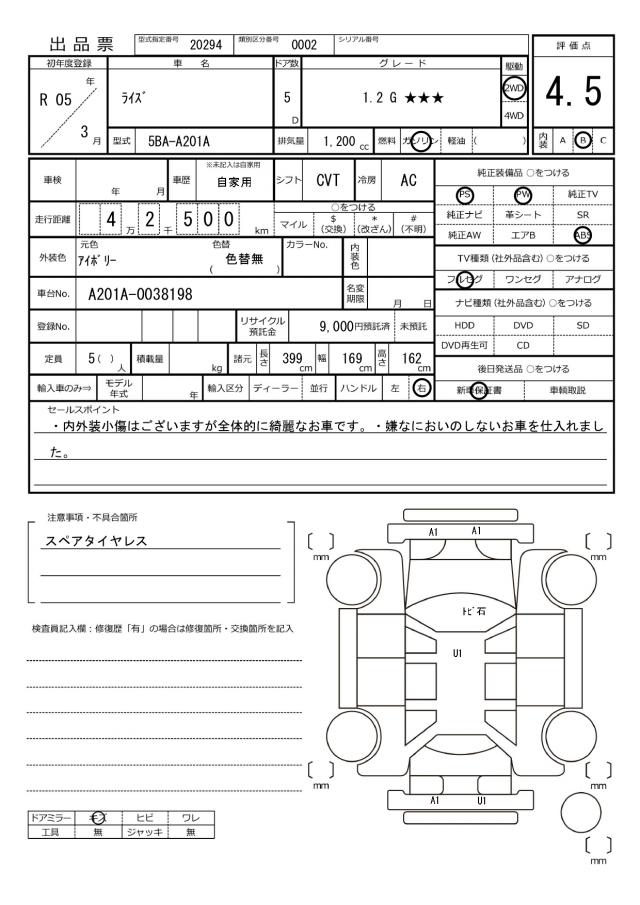 出品票 型式指定番号 20294 類別区分番号 0002 シリアル番号
評価点
初年度登録 車名 ドア数 グレード 駆動
R 05 年 3 月 ﾗｲｽﾞ 5 D 1.2 G ★★★ 2WD 4WD
4.5
型式 5BA-A201A 排気量 1,200 cc 燃料 ガソリン 軽油 ( )
内装 A B C
車検 年 月 車歴 ※未記入は自家用 自家用 シフト CVT 冷房 AC
純正装備品 ○をつける
PS PW 純正TV
走行距離 4 万 2 千 5 0 0 km ○をつける
マイル $ (交換) * (改ざん) # (不明)
純正ナビ 革シート SR
純正AW エアB ABS
外装色 元色 ｱｲﾎﾞﾘｰ 色替 ( 色替無 ) カラーNo. 内装色
TV種類 (社外品含む) ○をつける
フルセグ ワンセグ アナログ
車台No. A201A-0038198 名変期限 月 日
ナビ種類 (社外品含む) ○をつける
登録No. リサイクル預託金 9,000円預託済 未預託
HDD DVD SD
DVD再生可 CD
定員 5 ( ) 人 積載量 kg 諸元 長さ 399 cm 幅 169 cm 高さ 162 cm
後日発送品 ○をつける
輸入車のみ⇒ モデル年式 年 輸入区分 ディーラー 並行 ハンドル 左 右
新車保証書 車輌取説
セールスポイント
・内外装小傷はございますが全体的に綺麗なお車です。・嫌なにおいのしないお車を仕入れまし
た。
注意事項・不具合箇所
スペアタイヤレス
検査員記入欄：修復歴「有」の場合は修復箇所・交換箇所を記入
A1 A1
mm mm
ﾄﾋﾞ石
U1
mm mm
A1 U1
mm
ドアミラー キズ ヒビ ワレ
工具 無 ジャッキ 無